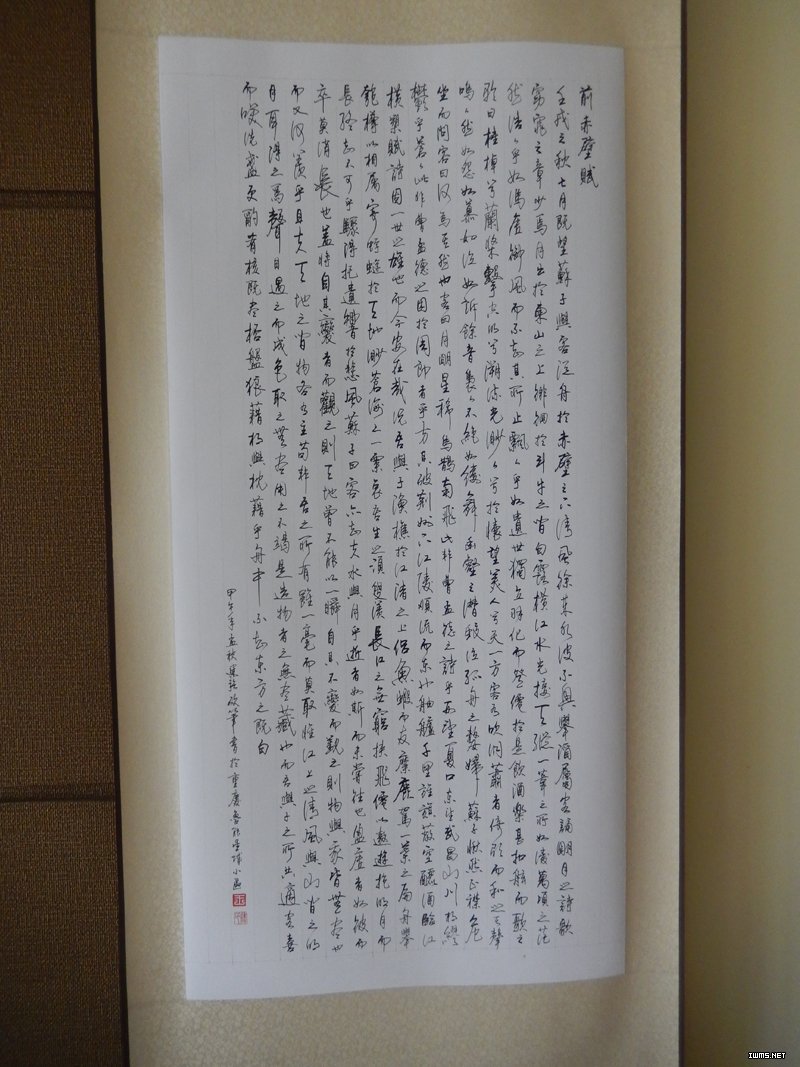 前赤壁賦
壬戌之秋七月既望蘇子與客泛舟於赤壁之下清風徐來水波不興舉酒屬客誦明月之詩歌
窈窕之章少焉月出於東山之上徘徊於斗牛之間白露橫江水光接天縱一葦之所如凌萬頃之茫
然浩浩乎如馮虛御風而不知其所止飄飄乎如遺世獨立羽化而登僊於是飲酒樂甚扣舷而歌之
歌曰桂棹兮蘭槳擊空明兮溯流光渺渺兮於懷望美人兮天一方客有吹洞蕭者倚歌而和之其聲
嗚嗚然如怨如慕如泣如訴餘音裊裊不絕如縷舞幽壑之潛蛟泣孤舟之嫠婦蘇子愀然正襟危
坐而問客曰何為其然也客曰月明星稀烏鵲南飛此非曹孟德之詩乎西望夏口東望武昌山川相繆
鬱乎蒼蒼此非曹孟德之困於周郎者乎方其破荊州下江陵順流而東也舳艫千里旌旗蔽空釃酒臨江
橫槊賦詩固一世之雄也而今安在哉況吾與子漁樵於江渚之上侶魚蝦而友麋鹿駕一葉之扁舟舉
匏樽以相屬寄蜉蝣於天地渺蒼海之一粟哀吾生之須臾羨長江之無窮挾飛僊以遨遊抱明月而
長終知不可乎驟得托遺響於悲風蘇子曰客亦知夫水與月乎逝者如斯而未嘗往也盈虛者如彼而
卒莫消長也蓋將自其變者而觀之則天地曾不能以一瞬自其不變而觀之則物與我皆無盡也
而又何羨乎且夫天地之間物各有主苟非吾之所有雖一毫而莫取惟江上之清風與山間之明
月耳得之為聲目遇之而成色取之無盡用之不竭是造物者之無盡藏也而吾與子之所共適客喜
而笑洗盞更酌肴核既盡杯盤狼藉相與枕藉乎舟中不知東方之既白
甲午年孟秋筆書於重慶魯能星城小區
IWMS.NET